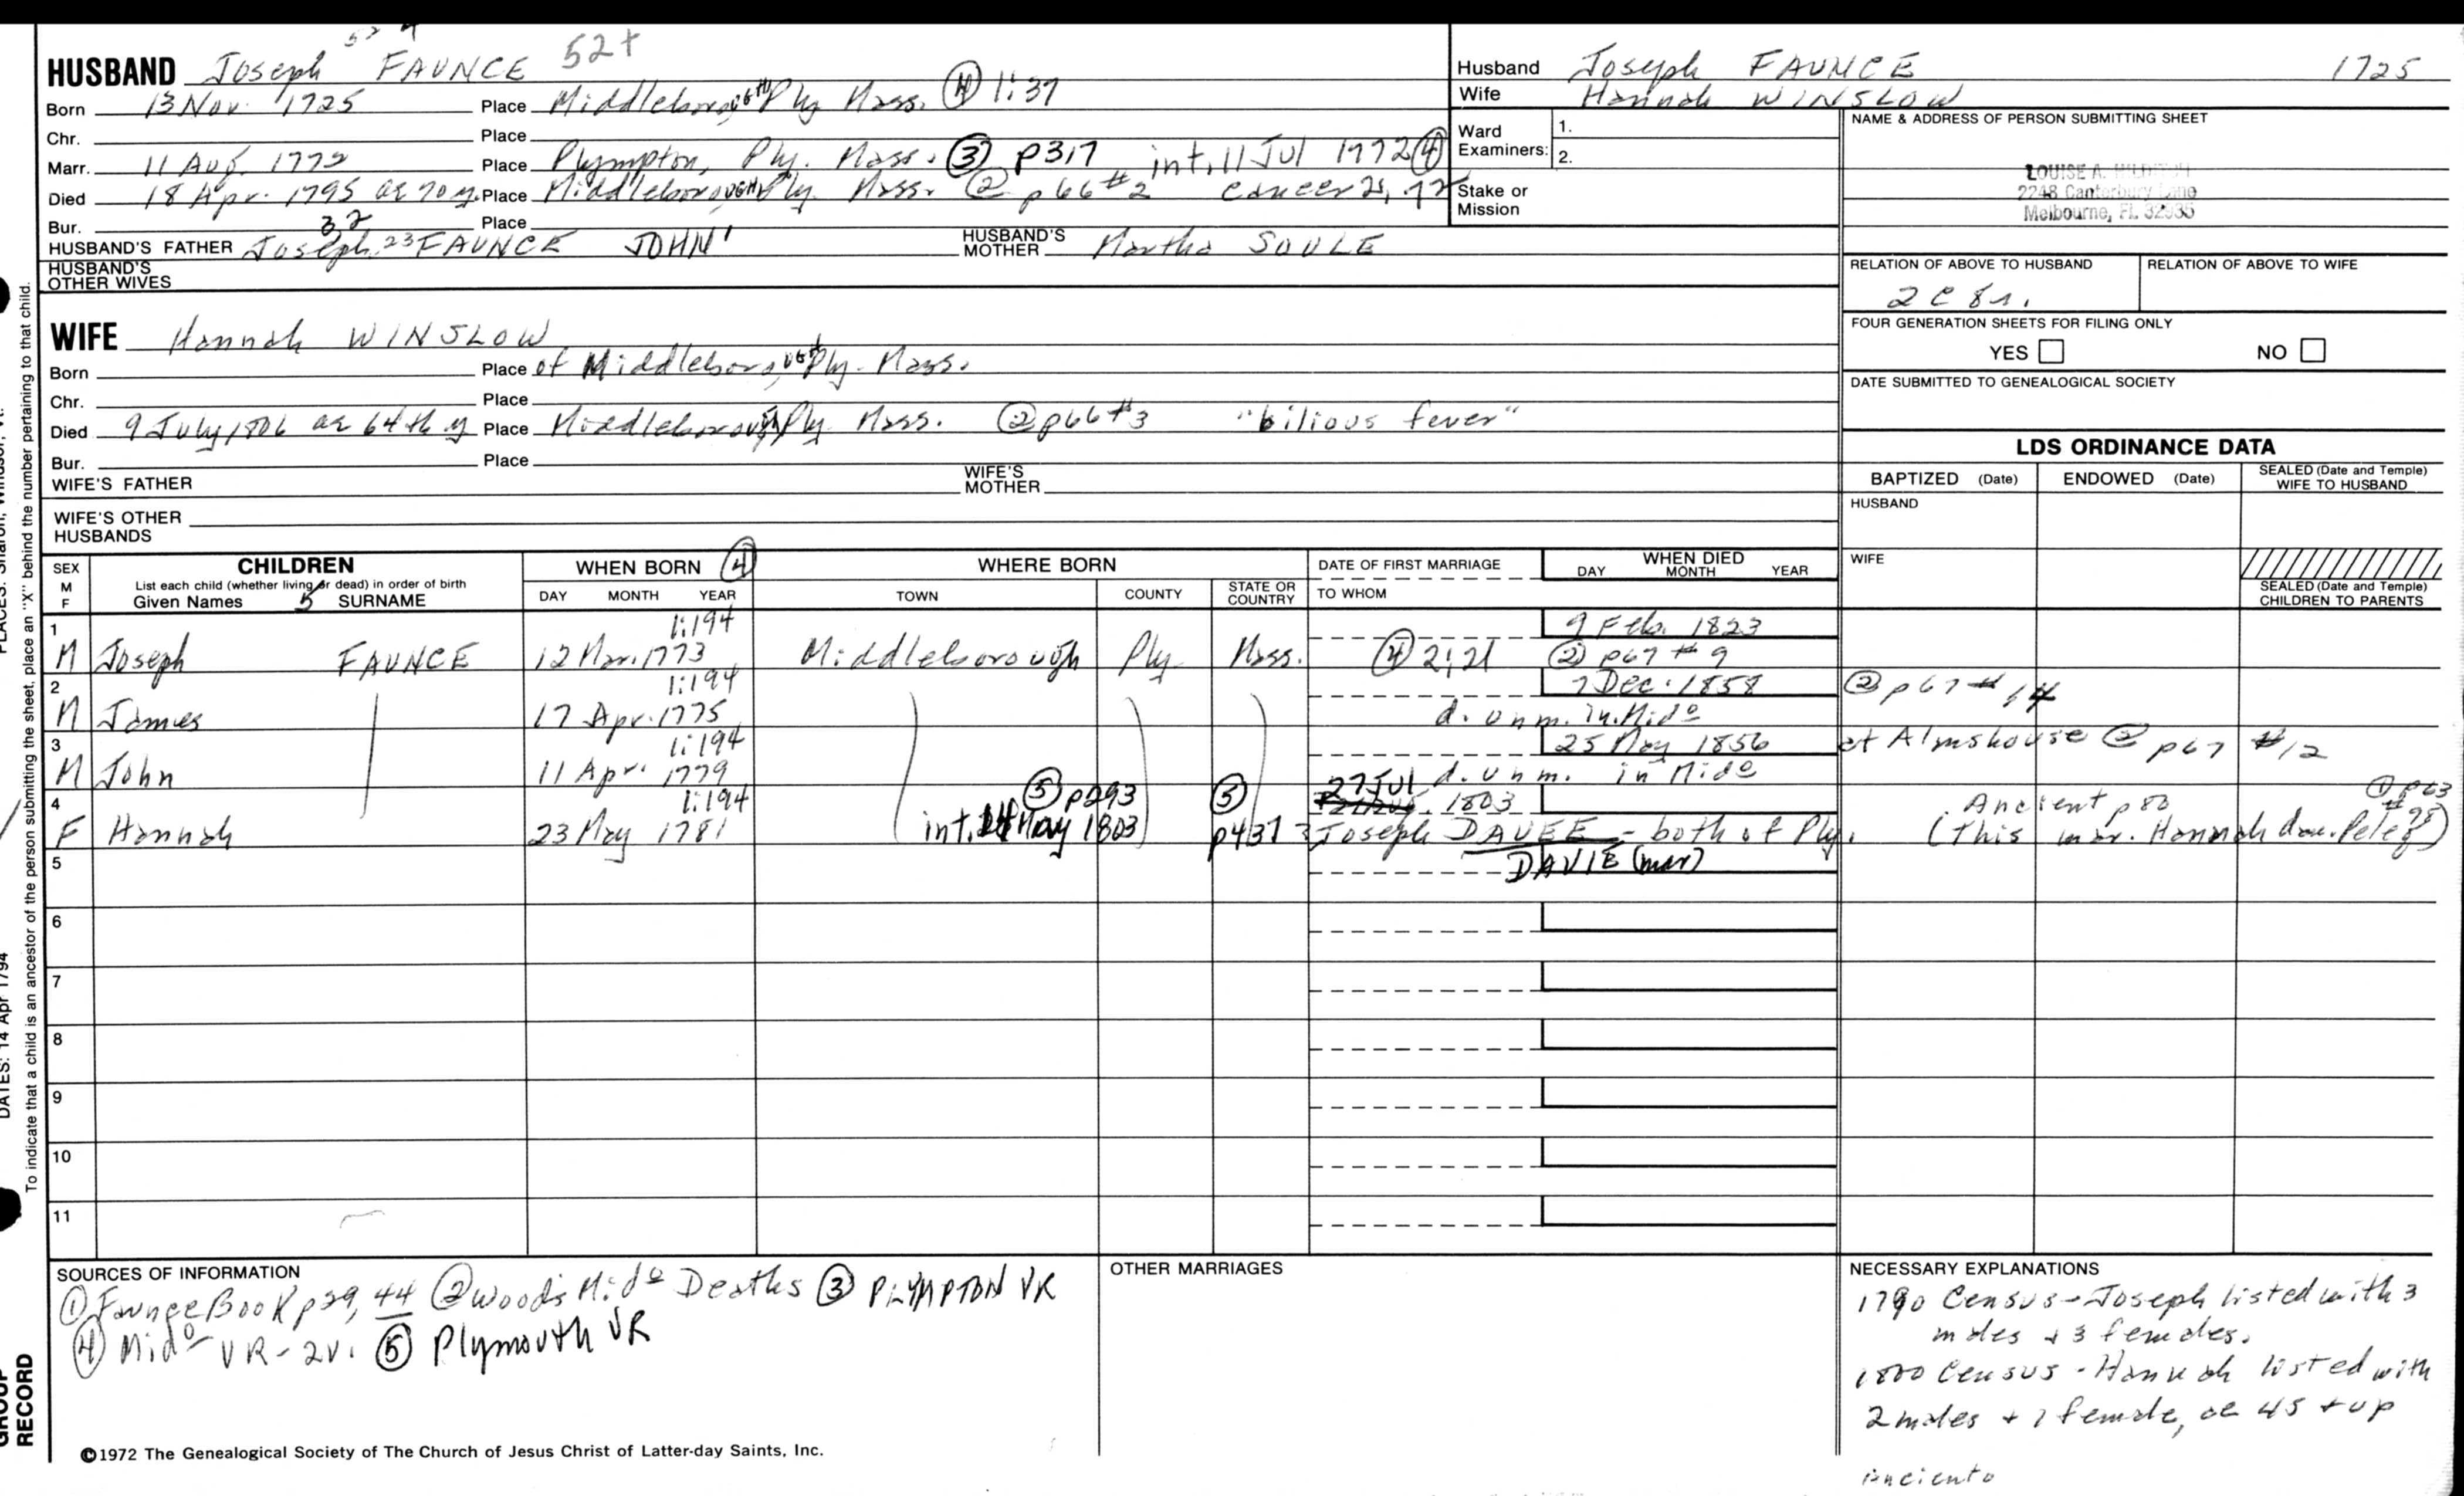 HUSBAND Joseph FAUNCE 52+
Born 13 Nov. 1725 Place Middleborough Ply Mass. ④ 1:37
Chr. Place
Marr. 11 Aug. 1772 Place Plympton, Ply. Mass. ③ p317 int. 11 Jul 1772 ④
Died 18 Apr. 1795 ae 70 y. Place Middleborough Ply. Mass. ② p66 #2 cancer
Bur. Place
HUSBAND'S FATHER Joseph FAUNCE JOHN HUSBAND'S MOTHER Martha SOULE
HUSBAND'S OTHER WIVES
WIFE Hannah WINSLOW
Born Place of Middleborough Ply. Mass.
Chr. Place
Died 9 July 1806 ae 64th y Place Middleborough Ply Mass. ② p66 #3 "bilious fever"
Bur. Place
WIFE'S FATHER WIFE'S MOTHER
WIFE'S OTHER HUSBANDS
Husband Joseph FAUNCE 1725
Wife Hannah WINSLOW
Ward Examiners: 1.
2.
Stake or Mission
NAME & ADDRESS OF PERSON SUBMITTING SHEET
LOUISE A.
2248 Canterbury Lane
Melbourne, FL 32935
RELATION OF ABOVE TO HUSBAND RELATION OF ABOVE TO WIFE
2c 8r.
FOUR GENERATION SHEETS FOR FILING ONLY
YES NO
DATE SUBMITTED TO GENEALOGICAL SOCIETY
LDS ORDINANCE DATA
BAPTIZED (Date) ENDOWED (Date) SEALED (Date and Temple) WIFE TO HUSBAND
HUSBAND
WIFE
SEALED (Date and Temple) CHILDREN TO PARENTS
SEX M F CHILDREN WHEN BORN ④ WHERE BORN DATE OF FIRST MARRIAGE WHEN DIED
List each child (whether living or dead) in order of birth
Given Names 5 SURNAME DAY MONTH YEAR TOWN COUNTY STATE OR COUNTRY TO WHOM DAY MONTH YEAR
1 1:194 9 Feb. 1823
M Joseph FAUNCE 12 Mar. 1773 Middleborough Ply. Mass. ④ 2:21 ② p67 #9
2 1:194 7 Dec. 1858 ② p67 #14
M James 17 Apr. 1775 d. unm. in Mido
3 1:194 25 May 1856 at Almshouse ② p67 #12
M John 11 Apr. 1779 d. unm. in Mido
4 1:194 ⑤ p293 ⑤ 27 Jul 1803 Ancient p 80 ① p63 #98
F Hannah 23 May 1781 int. 14 May 1803 p437 Joseph DAVEE - both of Ply. (This mar. Hannah dau. Peleg)
5 DAVIE (mar)
6
7
8
9
10
11
SOURCES OF INFORMATION
① Faunce Book p29, 44 ② Wood's Mido Deaths ③ PLYMPTON VR
④ Mido VR - 2v. ⑤ Plymouth VR
OTHER MARRIAGES
NECESSARY EXPLANATIONS
1790 Census - Joseph listed with 3
males + 3 females.
1800 Census - Hannah listed with
2 males + 1 female, ae 45 + up
©1972 The Genealogical Society of The Church of Jesus Christ of Latter-day Saints, Inc.
To indicate that a child is an ancestor of the person submitting the sheet, place an "X" behind the number pertaining to that child.
PLACES: Sharon, Windsor, Vt.
DATES: 14 Apr 1794
GROUP
RECORD